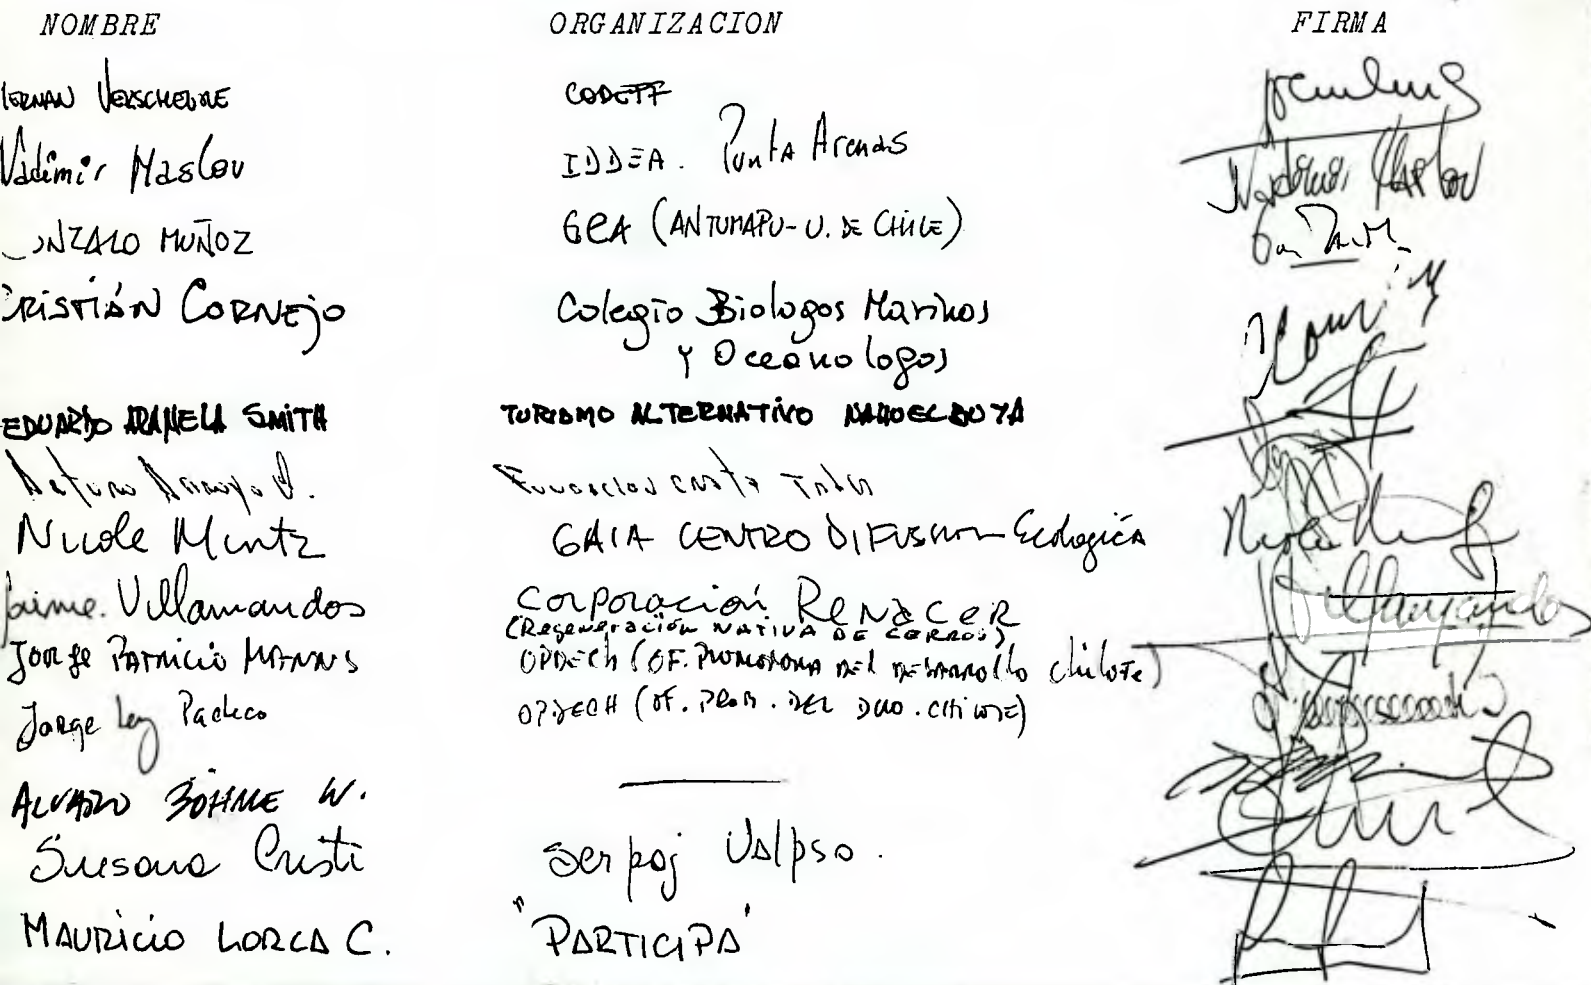 NOMBRE ORGANIZACION FIRMA
HERNAN VERSCHEURE CODEFF
Vladimir Maslov IDDEA. Punta Arenas
GONZALO MUÑOZ GEA (ANTUMAPU-U. DE CHILE)
CRISTIÁN CORNEJO Colegio Biologos Marinos
y Oceanologos
EDUARDO ARANEDA SMITH TURISMO ALTERNATIVO NAHUELBUTA
Arturo Arroyo
Nicole Mintz GAIA CENTRO DIFUSION Ecologica
Jaime Villamandos Corporación Renacer
(Regeneración NATIVA DE CERROS)
Jorge PATRICIO MANNS OPDECH (OF. PROMOTORA DEL DESARROLLO Chilote)
Jorge Ley Pacheco OPDECH (OF. PROM. DEL DLLO. CHILOTE)
ALVARO BÖHME W.
Susana Cristi Serpaj Valpso.
MAURICIO LORCA C. "PARTICIPA"